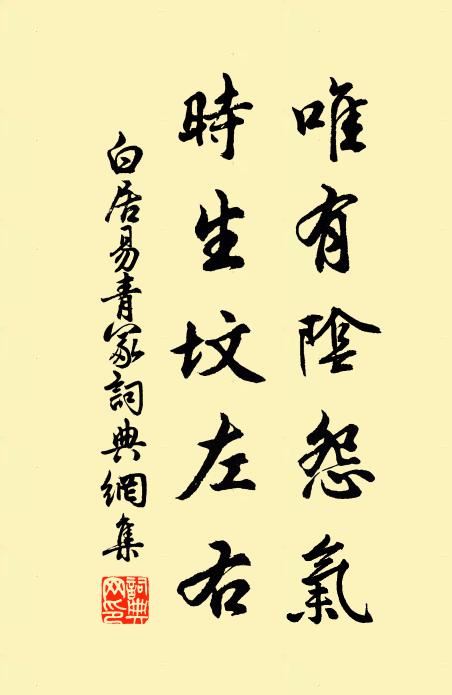 唯有陰怨氣
時生墳左右
白居易青冢詞典網集
詞典網印